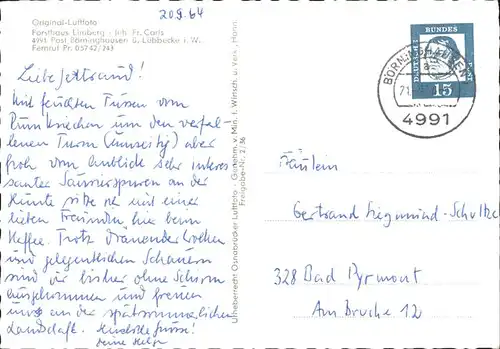 20.9.64
Original-Luftfoto
Forsthaus Limberg - Inh. Fr. Carls
4991 Post Börninghausen ü. Lübbecke i. W.
Fernruf Pr. Oldendorf 05742/243
Liebe Gertraud!
Mit feuchten Füssen vom
Rumkriechen um den verfal-
lenen Turm (umseitig) aber
froh vom Anblick sehr interes
santer Saurierspuren an der
Hunte sitze ich mit einer
lieben Freundin hier beim
Kaffee. Trotz dräuender Wolken
und gelegentlichen Schauern
sind wir bisher ohne Schirm
ausgekommen und freuen
uns an der spätsommerlichen
Landschaft. Herzliche Grüsse!
Deine Helga
Urheberrecht Osnabrücker Luftfoto - Genehm. v. Min. f. Wirtsch. u. Verk., Hann.
Freigabe-Nr. 2/36
DEUTSCHE BUNDESPOST
15
BÖRNINGHAUSEN
a
4991
Fräulein
Gertrand Siegmund-Schultze
328 Bad Pyrmont
Am Bruche 12